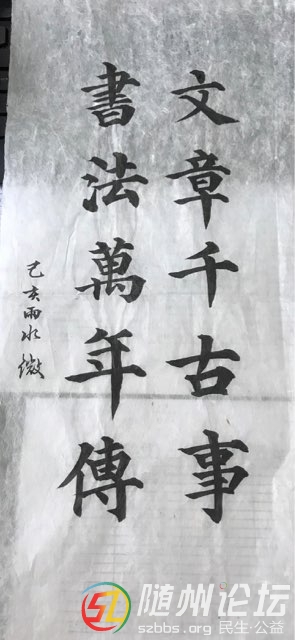 文章千古事
書法萬年傳
己亥雨水 微
随州论坛
szbbs.org 民生·公益